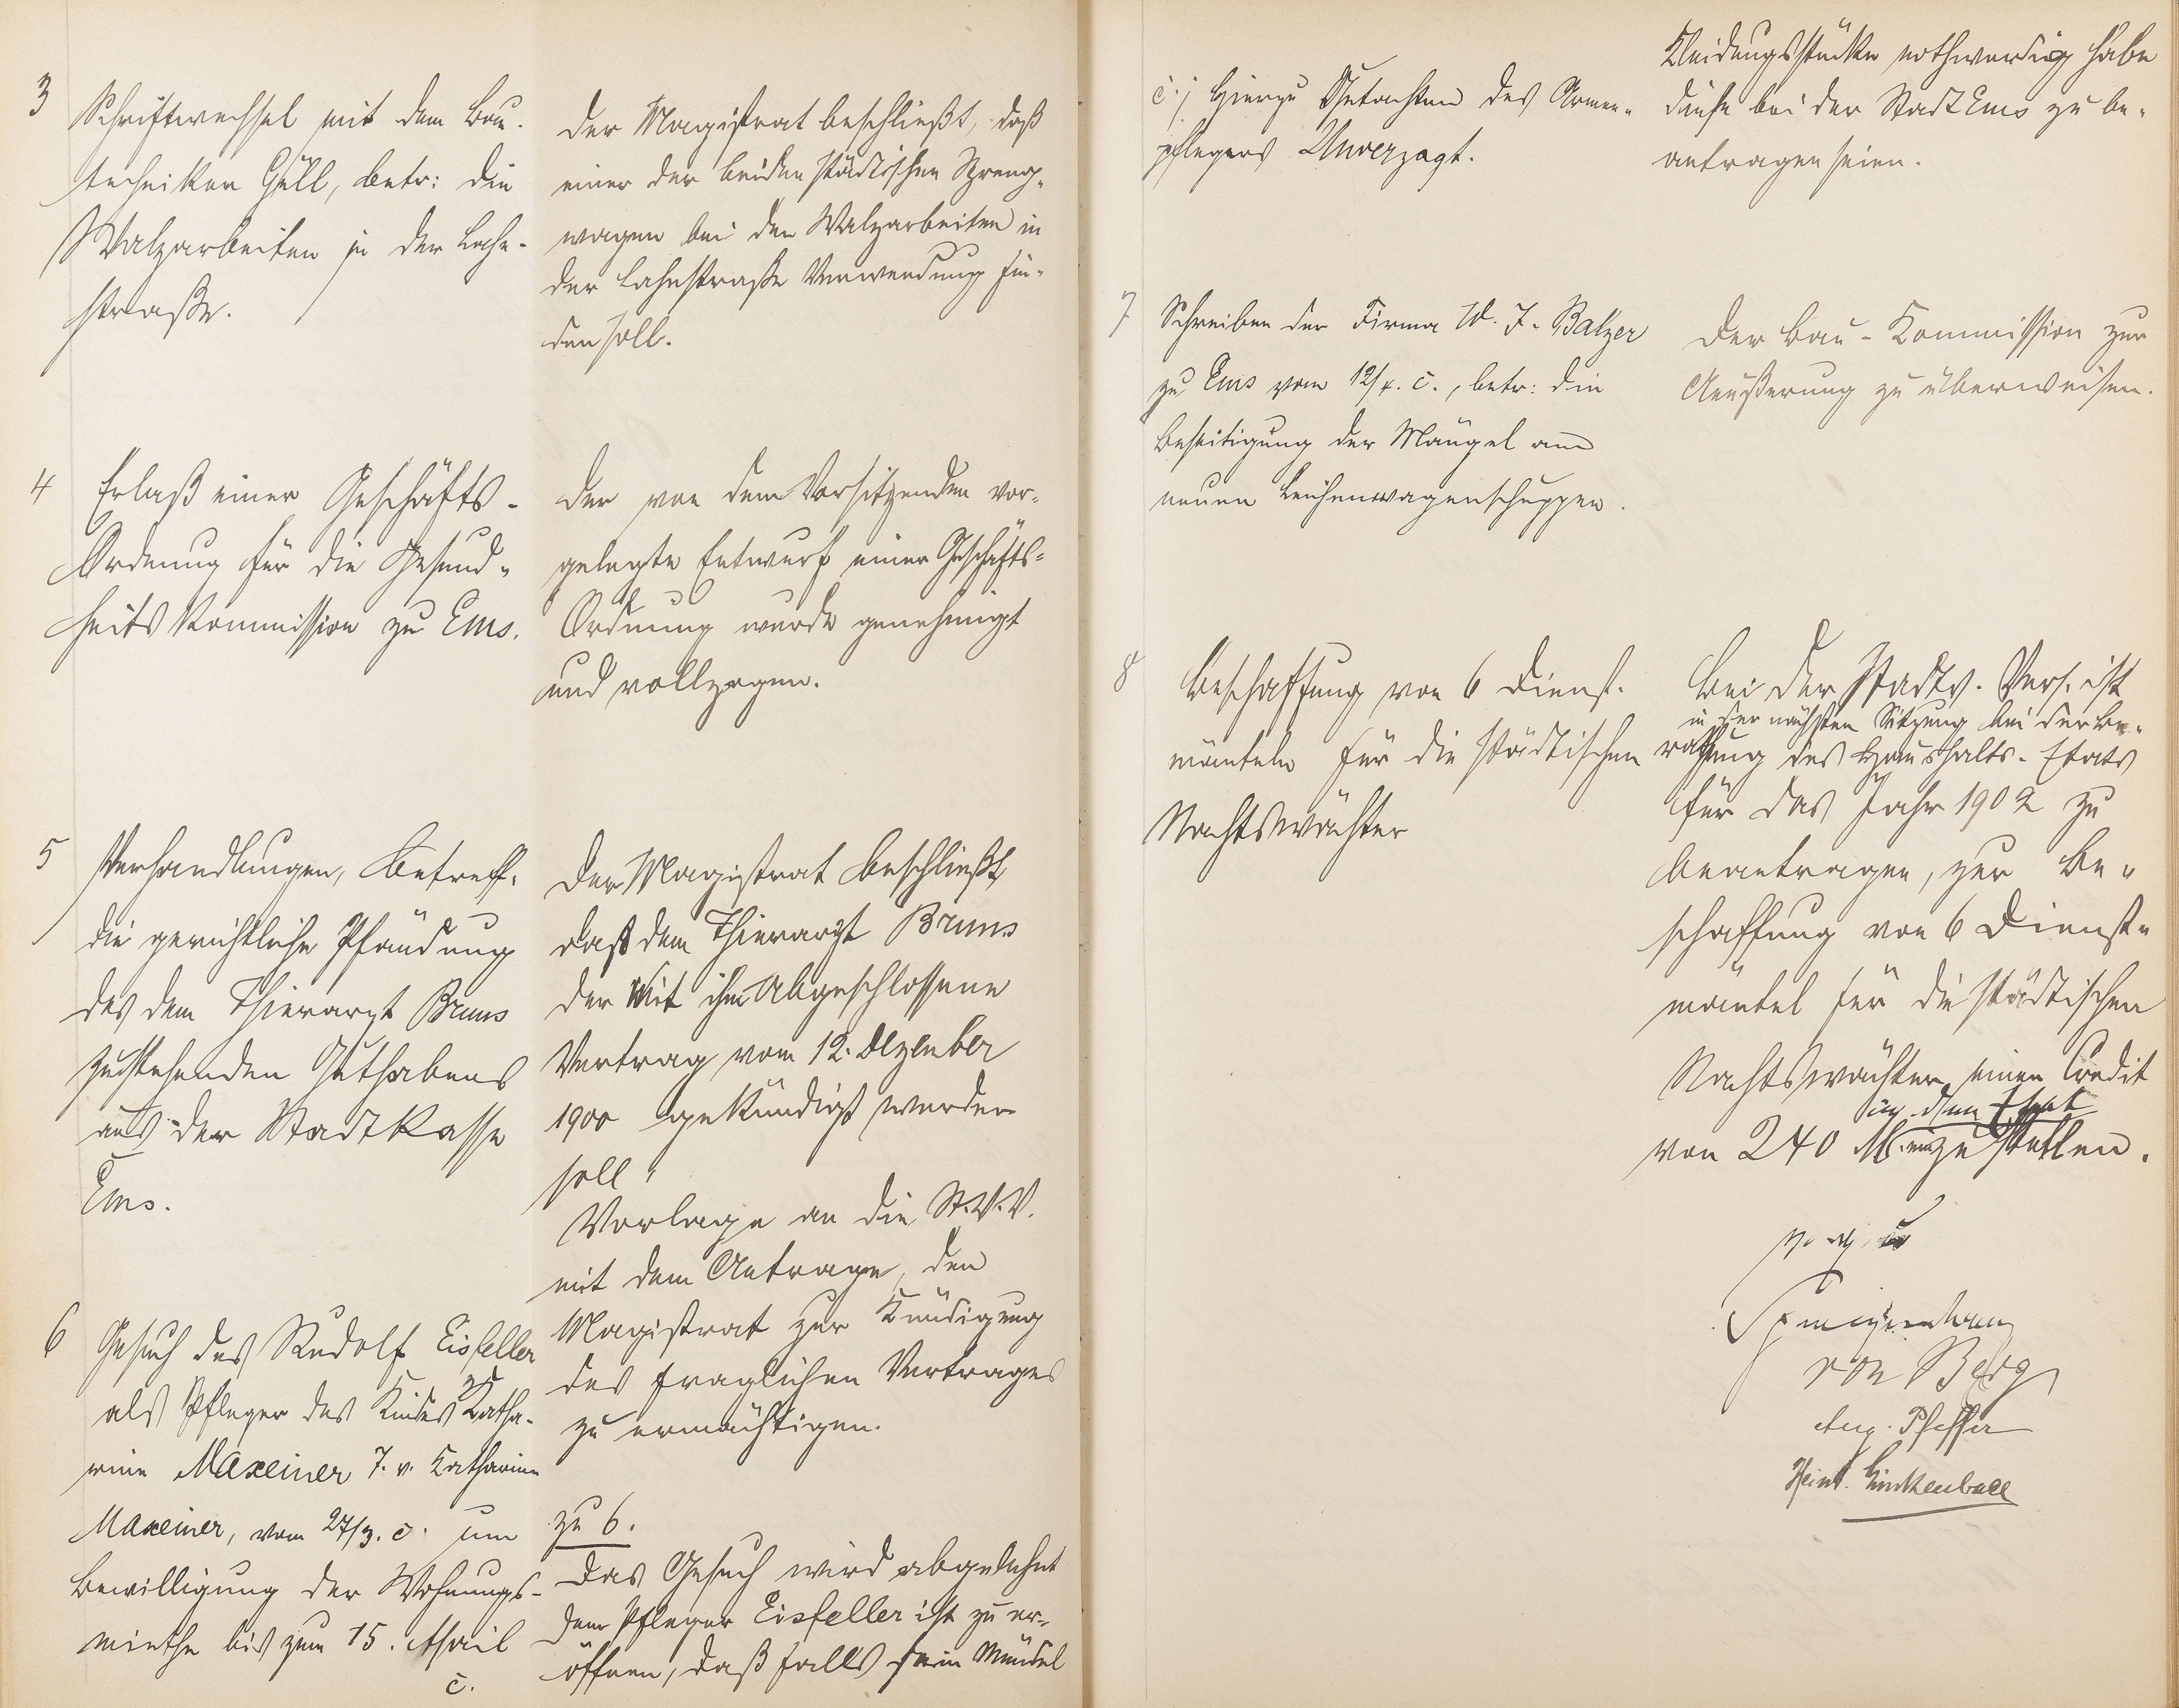 3
Schriftwechsel mit dem Bau-
techniker Güll, betr: die
Walzarbeiten in der Lahn-
straße.
Der Magistrat beschließt, daß
einer der beiden städtischen Spreng-
wagen bei den Walzarbeiten in
der Lahnstraße Verwendung fin-
den soll.
4
Erlaß einer Geschäfts-
Ordnung für die Gesund-
heits Kommission zu Ems.
Der von dem Vorsitzenden vor-
gelegte Entwurf einer Geschäfts-
Ordnung wurde genehmigt
und vollzogen.
5
Verhandlungen, betreff.
die gerichtliche Pfändung
des dem Thierarzt Bruns
zustehenden Guthabens
aus der Stadtkasse
Ems.
Der Magistrat beschließt,
daß dem Thierarzt Bruns
der mit ihm abgeschlossene
Vertrag vom 12. Dezember
1900 gekündigt werden
soll.
Vorlage an die St.V.V.
mit dem Antrage, den
Magistrat zur Kündigung
des fraglichen Vertrages
zu ermächtigen.
6
Gesuch des Rudolf Eisfeller
als Pfleger des Kindes Katha-
rine Maxeiner T. v. Katharine
Maxeiner, vom 27/3. c. um
Bewilligung der Wohnungs-
miethe bis zum 15. April
c.
zu 6.
Das Gesuch wird abgelehnt
dem Pfleger Eisfeller ist zu er-
öffnen, daß falls sein Mündel
Kleidungsstücke nothwendig habe
diese bei der Stadt Ems zu be-
antragen seien.
c.; Hierzu Gutachten des Armen-
pflegers Unverzagt.
7
Schreiben der Firma W. J. Balzer
zu Ems vom 12/4. c., betr: die
Beseitigung der Mängel am
neuen Leichenwagenschuppen.
Der Bau-Kommission zur
Aeußerung zu überweisen.
8
Beschaffung von 6 Dienst-
mänteln für die städtischen
Nachtswächter
Bei der Stadtv. Vers. ist
in der nächsten Sitzung bei der Be-
rathung des Haushalts-Etats
für das Jahr 1902 zu
beantragen, zur Be-
schaffung von 6 Dienst-
mäntel für die städtischen
Nachtswächter einen Credit
in den Etat
von 240 M. einzustellen.
v. g. u.
von Berg
Aug. Pfeffer
Heinr. Linkenbach